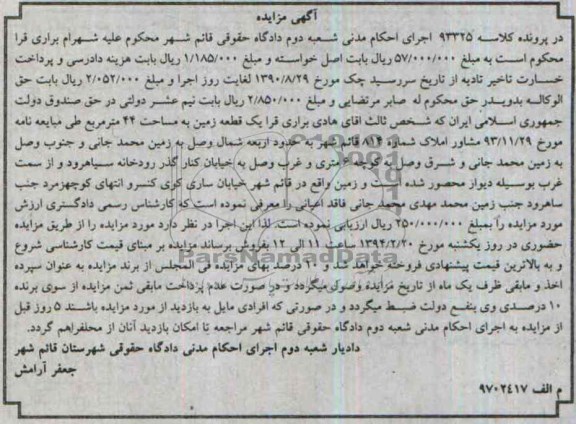 آگهی مزایده
در پرونده کلاسه ۹۳۳۲۵ اجرای احکام مدنی شعبه دوم دادگاه حقوقی قائم شهر محکوم علیه شهرام براری قرا
محکوم است به مبلغ ۵۷/۰۰۰/۰۰۰ ریال بابت اصل خواسته و مبلغ ۱/۱۸۵/۰۰۰ ریال بابت هزینه دادرسی و پرداخت
خسارت تاخیر تادیه از تاریخ سررسید چک مورخ ۱۳۹۰/۸/۲۹ لغایت روز اجرا و مبلغ ۲/۰۵۲/۰۰۰ ریال بابت حق
الوکاله بدویدر حق محکوم له صابر مرتضایی و مبلغ ۲/۸۵۰/۰۰۰ ریال بابت نیم عشر دولتی در حق صندوق دولت
جمهوری اسلامی ایران که شخص ثالث اقای هادی براری قرا یک قطعه زمین به مساحت ۴۴ مترمربع طی مبایعه نامه
مورخ ۹۳/۱۱/۲۹ مشاور املاک شماره ۸۱۴ قائم شهر به حدود اربعه شمال وصل به زمین محمد جانی و جنوب وصل
به زمین محمد جانی و شرق وصل به کوچه متری و غرب وصل به خیابان کنار گذر رودخانه سیاهرود و از سمت
غرب بوسیله دیوار محصور شده است و زمین واقع در قائم شهر خیابان ساری کوی کنسرو انتهای کوچهزمرد جنب
ساهرود جنب زمین محمد مهدی محمد جانی فاقد اعیانی را معرفی نموده است که کارشناس رسمی دادگستری ارزش
مورد مزایده را بمبلغ ۲۵۰/۰۰۰/۰۰۰ ریال ارزیابی نموده است لذا این اجرا در نظر دارد مورد مزایده را از طریق مزایده
حضوری در روز یکشنبه مورخ ۱۳۹۴/۲/۲۰ ساعت ۱۱ الی ۱۲ بفروش برساند مزایده بر مبنای قیمت کارشناسی شروع
و به بالاترین قیمت پیشنهادی فروخته خواهد شد و ۱۰ درصد بهای مزایده فی المجلس از برند مزایده به عنوان سپرده
اخذ و مابقی ظرف یک ماه از تاریخ مزایده وصول میگردد و در صورت عدم پرداخت مابقی ثمن مزایده از سوی برنده
۱۰ درصدی وی بنفع دولت ضبط میگردد و در صورتی که افرادی مایل به بازدید از مورد مزایده باشند ۵ روز قبل
از مزایده به اجرای احکام مدنی شعبه دوم دادگاه حقوقی قائم شهر مراجعه تا امکان بازدید آنان از محلفراهم گردد.
دادیار شعبه دوم اجرای احکام مدنی دادگاه حقوقی شهرستان قائم شهر
جعفر آرامش
م الف ۹۷۰۲۴۱۷
ParsNamadData